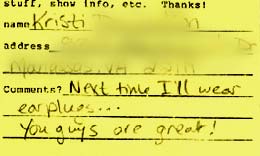 stuff, show info, etc. Thanks!
name Kristi
address Dr
Manassas, VA
Comments? Next time I'll wear
earplugs...
You guys are great!